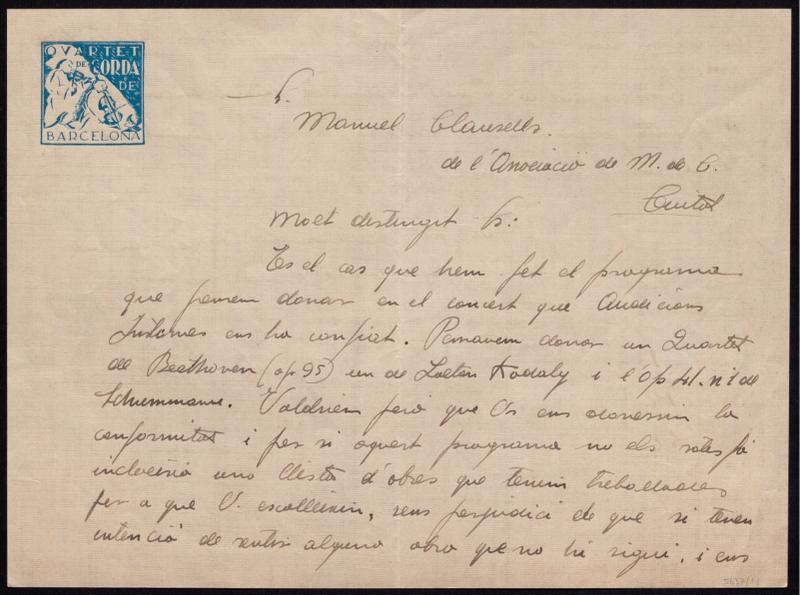 QVARTET
DE CORDA
DE
BARCELONA
S.
Manuel Clausells.
de l'Associació de M. da C.
Ciutat
Molt distingit S:
Es el cas que hem fet el programa
que pensem donar en el concert que Audicions
Intimes ens ha confiat. Pensavem donar un Quartet
de Beethoven (op 95) un de Zoltan Kodaly i l'op 41. nº1 de
Schummann. Voldriem però que Vs ens donessin la
conformitat i per si aquest programa no els
incloeixo una llista d'obres que tenim treballades
per a que V. escolleixin, sens perjudici de que si tenen
intenció de sentir alguna obra que no hi sigui, i ens
5637/1